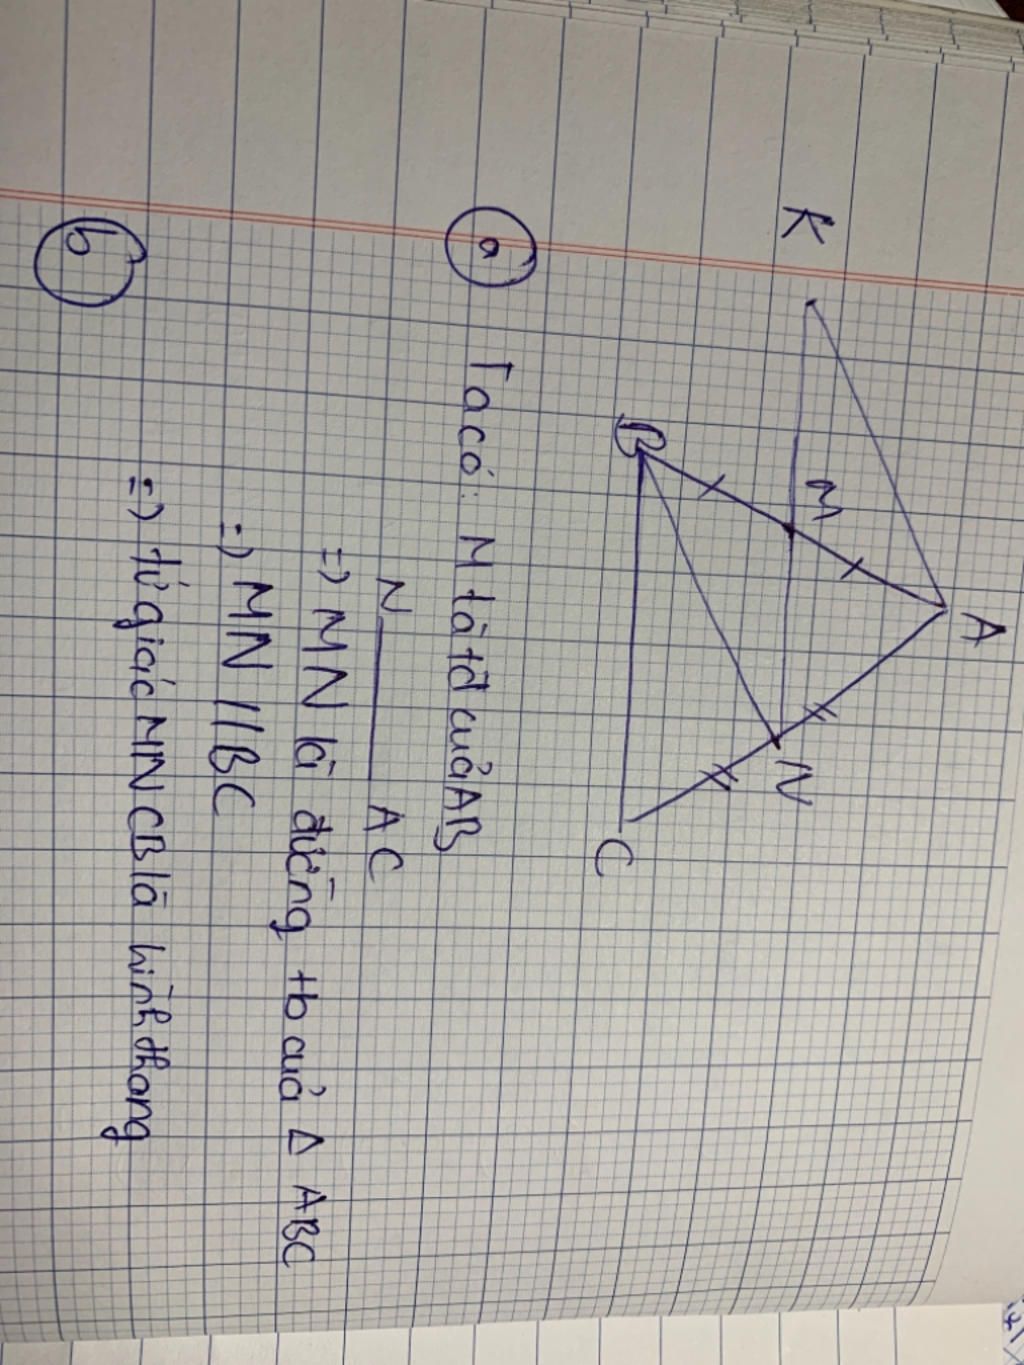 A
K
M
N
B
C
a
Ta có: M là tđ của AB
N ——— AC
=> MN là đường tb của Δ ABC
=> MN // BC
=> tứ giác MNCB là hình thang
b